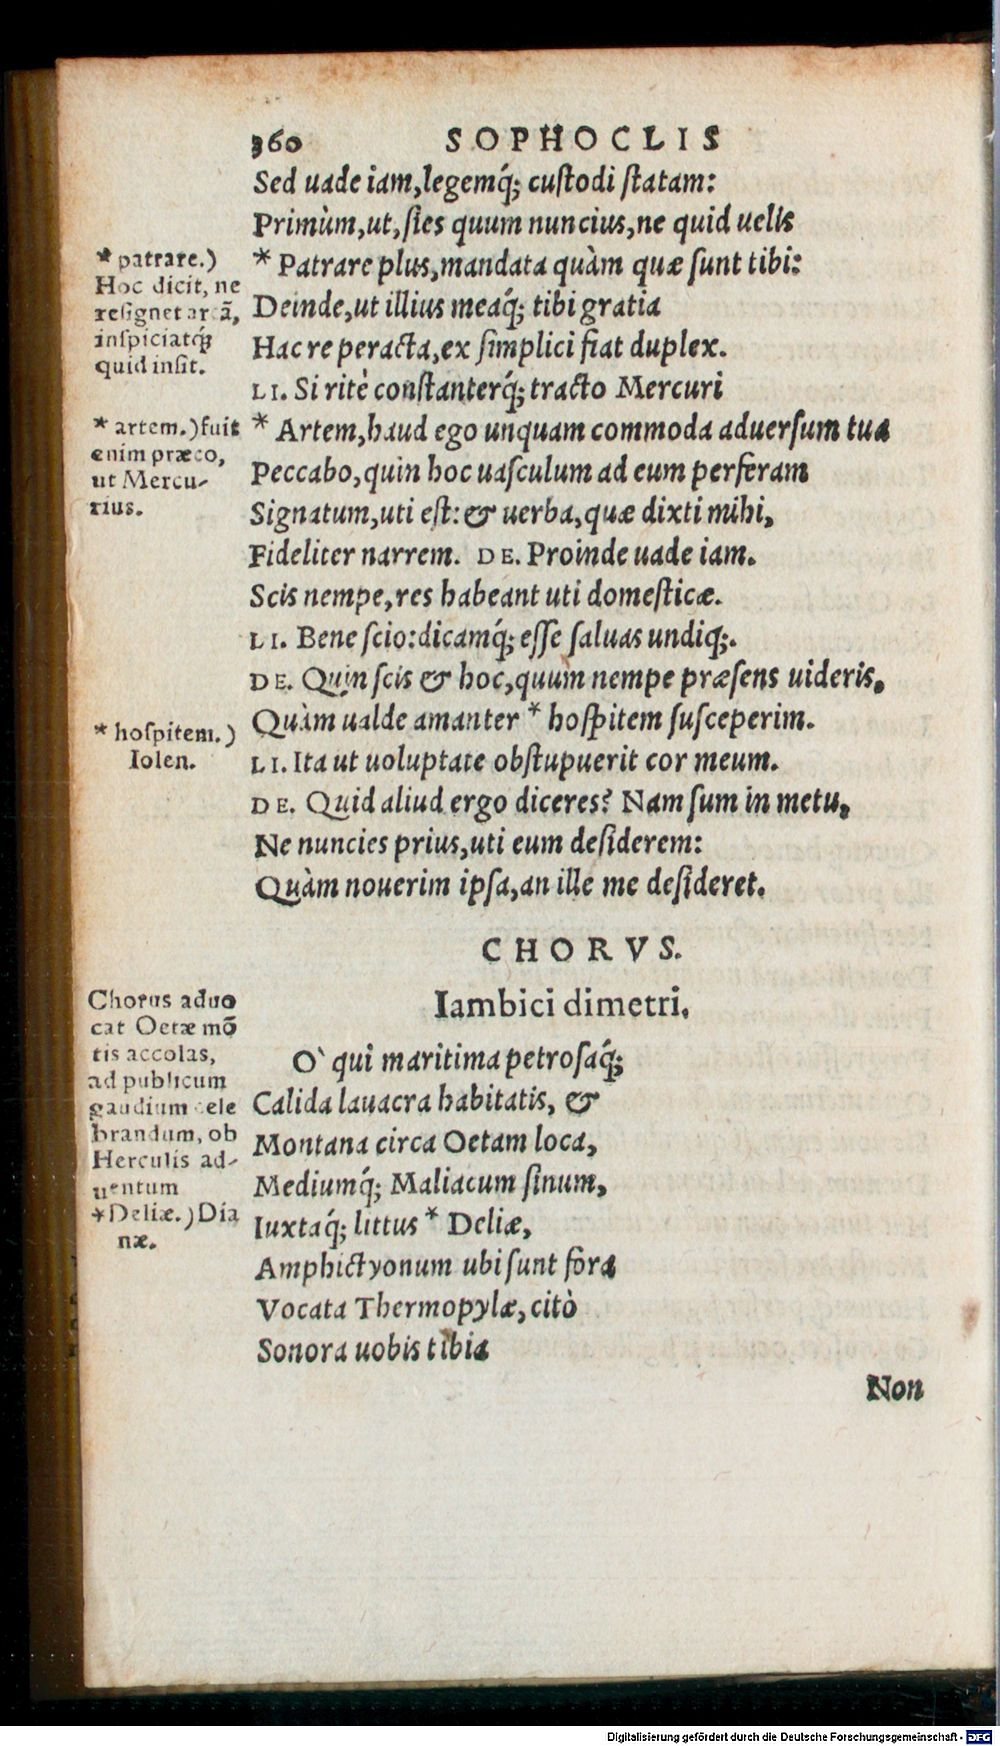 360 SOPHOCLIS
Sed uade iam, legemq́; custodi statam:
Primùm, ut, sies quum nuncius, ne quid uelis
* Patrare plus, mandata quàm quæ sunt tibi:
Deinde, ut illius meaq́; tibi gratia
Hac re peracta, ex simplici fiat duplex.
LI. Si ritè constanterq́; tracto Mercuri
* Artem, haud ego unquam commoda aduersum tua
Peccabo, quin hoc uasculum ad eum perferam
Signatum, uti est: & uerba, quæ dixti mihi,
Fideliter narrem. DE. Proinde uade iam.
Scis nempe, res habeant uti domesticæ.
LI. Bene scio: dicamq́; esse saluas undiq;.
DE. Quin scis & hoc, quum nempe præsens uideris,
Quàm ualde amanter * hospitem susceperim.
LI. Ita ut uoluptate obstupuerit cor meum.
DE. Quid aliud ergo diceres? Nam sum in metu,
Ne nuncies prius, uti eum desiderem:
Quàm nouerim ipsa, an ille me desideret.
CHORVS.
Iambici dimetri.
O` qui maritima petrosaq́;
Calida lauacra habitatis, &
Montana circa Oetam loca,
Mediumq́; Maliacum sinum,
Iuxtaq́; littus * Deliæ,
Amphictyonum ubi sunt fora
Vocata Thermopylæ, citò
Sonora uobis tibia
Non
* patrare.)
Hoc dicit, ne
resignet arcã,
inspiciatq́;
quid insit.
* artem.) fuit
enim præco,
ut Mercu-
rius.
* hospitem.)
Iolen.
Chorus aduo
cat Oetæ mõ
tis accolas,
ad publicum
gaudium cele
brandum, ob
Herculis ad-
uentum
* Deliæ.) Dia
næ.
Digitalisierung gefördert durch die Deutsche Forschungsgemeinschaft - DFG